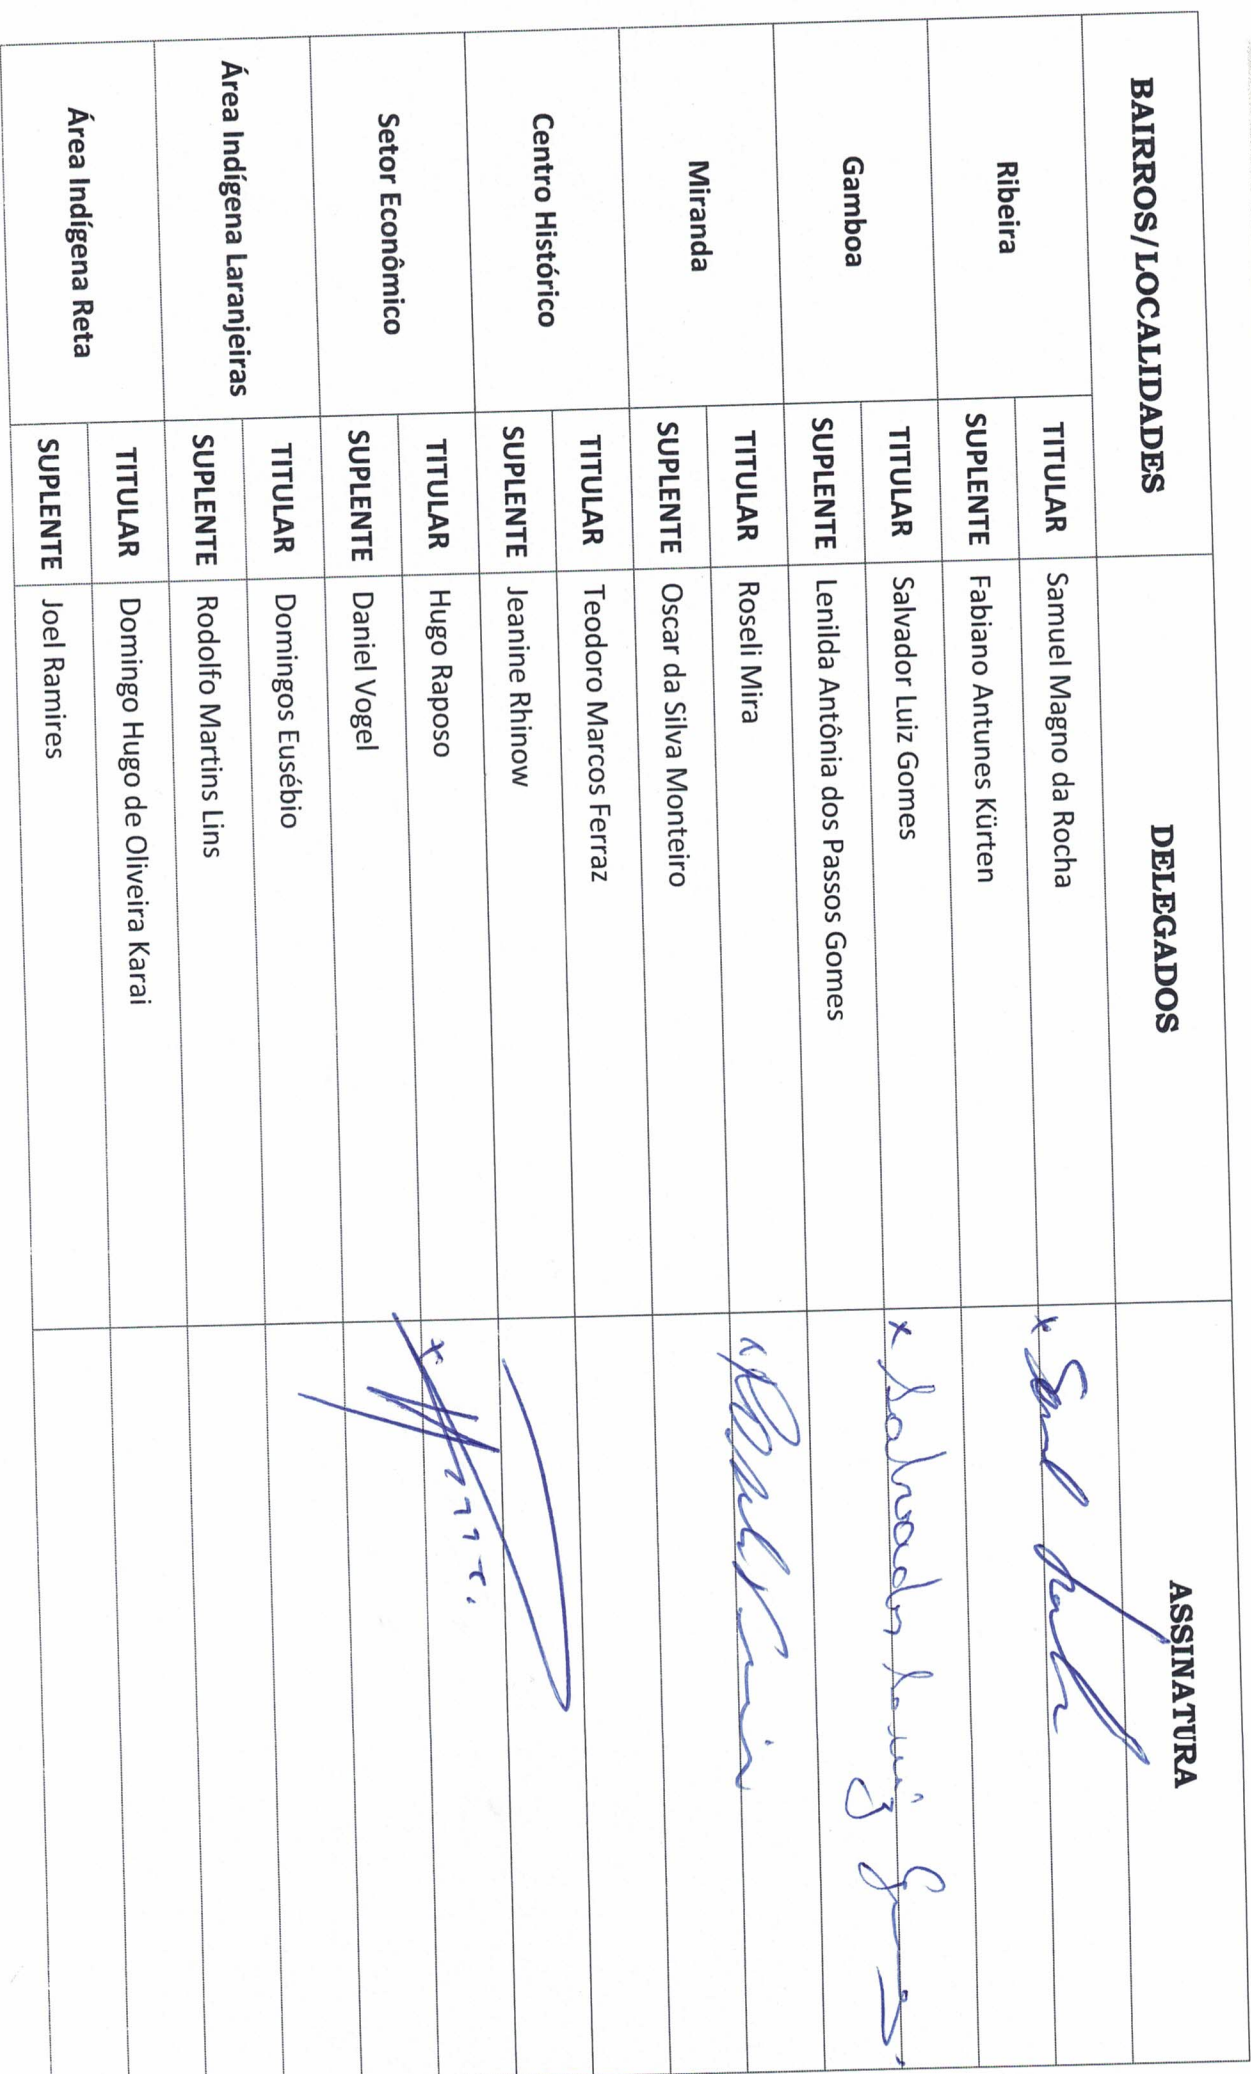 BAIRROS/LOCALIDADES DELEGADOS ASSINATURA
Ribeira
TITULAR Samuel Magno da Rocha x
SUPLENTE Fabiano Antunes Kürten
Gamboa
TITULAR Salvador Luiz Gomes x Salvador Luiz Gomes
SUPLENTE Lenilda Antônia dos Passos Gomes
Miranda
TITULAR Roseli Mira x
SUPLENTE Oscar da Silva Monteiro
Centro Histórico
TITULAR Teodoro Marcos Ferraz
SUPLENTE Jeanine Rhinow
Setor Econômico
TITULAR Hugo Raposo x
SUPLENTE Daniel Vogel
Área Indígena Laranjeiras
TITULAR Domingos Eusébio
SUPLENTE Rodolfo Martins Lins
Área Indígena Reta
TITULAR Domingo Hugo de Oliveira Karai
SUPLENTE Joel Ramires